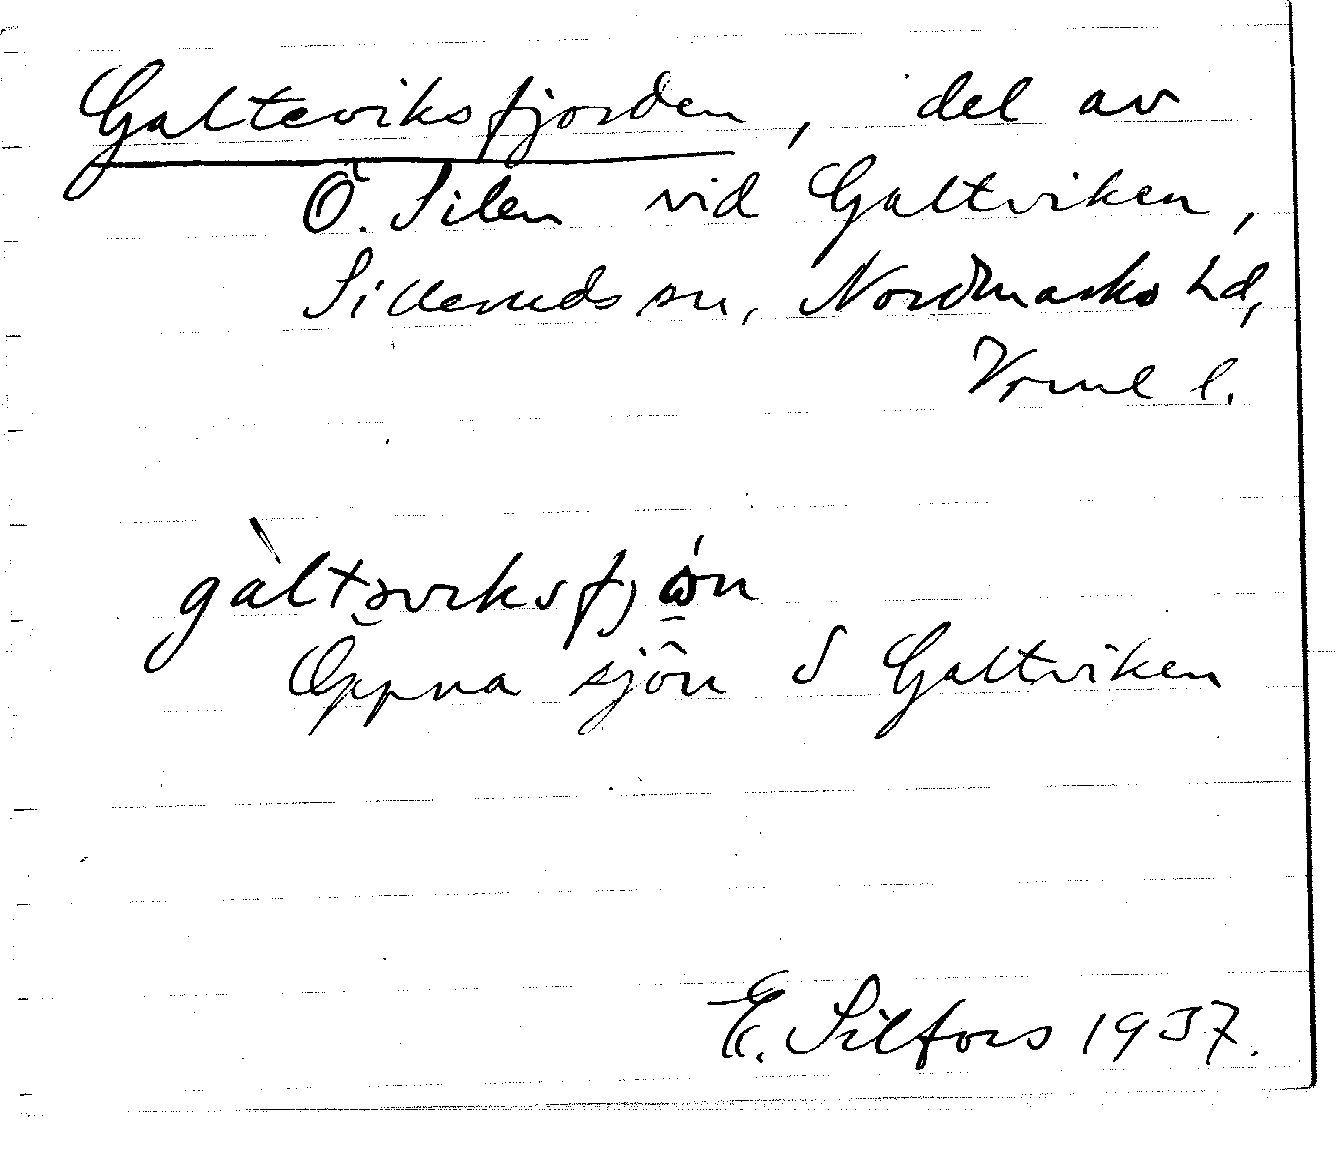 Galteviksfjorden, del av
Ö. Silen vid Galtviken,
Silleruds sn, Nordmarks hd,
Vrml l.
gàltəviksfjó̱n
Öppna sjön S Galtviken
E. Silfors 1937.